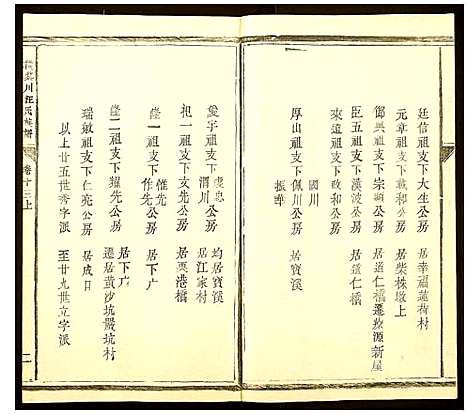 廷信祖支下大生公房 居幸福蓮荷村
元章祖支下敦和公房 居柴株墩上
鄧興祖支下宗顯公房 居道仁橋遷婺源新屋
臣五祖支下漢波公房 居道仁橋
來遠祖支下政和公房
國川
厚山祖支下佩川公房 居寳溪
振聲
虔忠
愛字祖支下渭川公房 均居寳溪
居江家村
把一祖支下文先公房 居栗港橋
惟先
蓥一祖支下作先公房 居下广
居下广
蓥二祖支下耀先公房 遷居黃沙坑嚴坑村
瑞敏祖支下仁亮公房 居成日
以上廿五世秀字派 至廿九世立字派
川汪氏
卷十三上
二